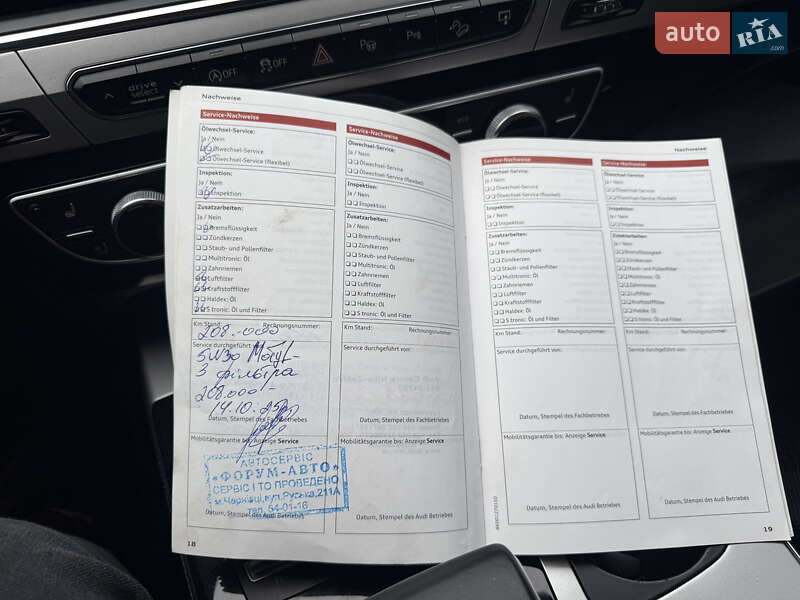 auto RIA .com
drive select
OFF
OFF
Nachweise
Service-Nachweise
Ölwechsel-Service:
Ja / Nein
Ölwechsel-Service
Ölwechsel-Service (flexibel)
Inspektion:
Ja / Nein
Inspektion
Zusatzarbeiten:
Ja / Nein
Bremsflüssigkeit
Zündkerzen
Staub- und Pollenfilter
Multitronic: Öl
Zahnriemen
Luftfilter
Kraftstofffilter
Haldex: Öl
S tronic: Öl und Filter
Km Stand: Rechnungsnummer:
208.-000
Service durchgeführt
5W30
3 фільтра
208.000-
14.10.25
Datum, Stempel des Fachbetriebes
Mobilitätsgarantie bis: Anzeige Service
АВТОСЕРВІС
«ФОРУМ-АВТО»
СЕРВІС І ТО ПРОВЕДЕНО
м.Черкаси, вул.Руська,211А
тел. 54-01-16
Datum, Stempel des Audi Betriebes
18
Service-Nachweise
Ölwechsel-Service:
Ja / Nein
Ölwechsel-Service
Ölwechsel-Service (flexibel)
Inspektion:
Ja / Nein
Inspektion
Zusatzarbeiten:
Ja / Nein
Bremsflüssigkeit
Zündkerzen
Staub- und Pollenfilter
Multitronic: Öl
Zahnriemen
Luftfilter
Kraftstofffilter
Haldex: Öl
S tronic: Öl und Filter
Km Stand: Rechnungsnummer:
Service durchgeführt von:
Datum, Stempel des Fachbetriebes
Mobilitätsgarantie bis: Anzeige Service
Datum, Stempel des Audi Betriebes
Nachweise
Service-Nachweise
Ölwechsel-Service:
Ja / Nein
Ölwechsel-Service
Ölwechsel-Service (flexibel)
Inspektion:
Ja / Nein
Inspektion
Zusatzarbeiten:
Ja / Nein
Bremsflüssigkeit
Zündkerzen
Staub- und Pollenfilter
Multitronic: Öl
Zahnriemen
Luftfilter
Kraftstofffilter
Haldex: Öl
S tronic: Öl und Filter
Km Stand: Rechnungsnummer:
Service durchgeführt von:
Datum, Stempel des Fachbetriebes
Mobilitätsgarantie bis: Anzeige Service
Datum, Stempel des Audi Betriebes
Service-Nachweise
Ölwechsel-Service:
Ja / Nein
Ölwechsel-Service
Ölwechsel-Service (flexibel)
Inspektion:
Ja / Nein
Inspektion
Zusatzarbeiten:
Ja / Nein
Bremsflüssigkeit
Zündkerzen
Staub- und Pollenfilter
Multitronic: Öl
Zahnriemen
Luftfilter
Kraftstofffilter
Haldex: Öl
S tronic: Öl und Filter
Km Stand: Rechnungsnummer:
Service durchgeführt von:
Datum, Stempel des Fachbetriebes
Mobilitätsgarantie bis: Anzeige Service
Datum, Stempel des Audi Betriebes
19